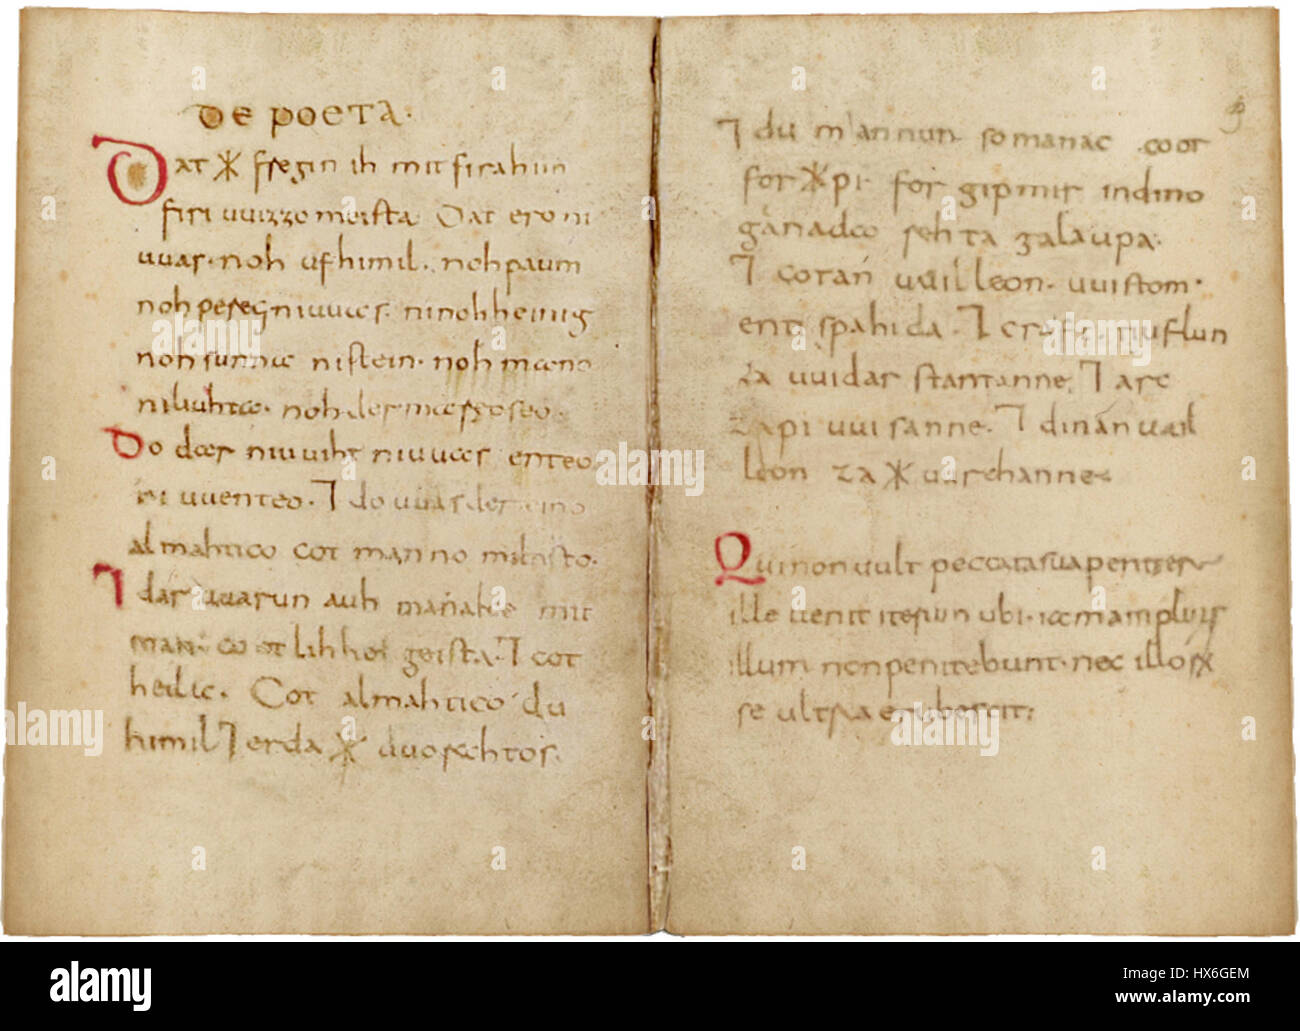 DE POETA·
Dat ᛡ fregin ih mit firahim
firi uuizzo meista. Dat ero ni
uuas· noh ufhimil· noh paum
noh pereg ni uuas· ninohheinig
noh sunna nistein· noh mano
niliuhta· noh der mareoseo·
Do dar niuuiht niuuas enteo
ni uuenteo· ⁊ do uuas der eino
almahtico cot manno miltisto·
⁊ dar uuarun auh manake mit
inan· cootlihhe geista· ⁊ cot
heilac· Cot almahtico du
himil ⁊ erda ᛡ uuorahtos·
⁊ du mannun so manac coot
forᛡpi· for gipmir indino
ganada rehta galaupa·
⁊ cotan uuilleon· uuistom·
enti spahida· ⁊ craft· tiuflun
za uuidar stantanne, ⁊ arc
zapi uuisanne· ⁊ dinan uuil
leon za ᛡ uurchanne
Qui non uult peccata sua penitere
ille uenit iterum ubi· iam amplius
illum non penitebunt· nec illorum
se ultra erubescit;
alamy
HX6GEM
www.alamy.com